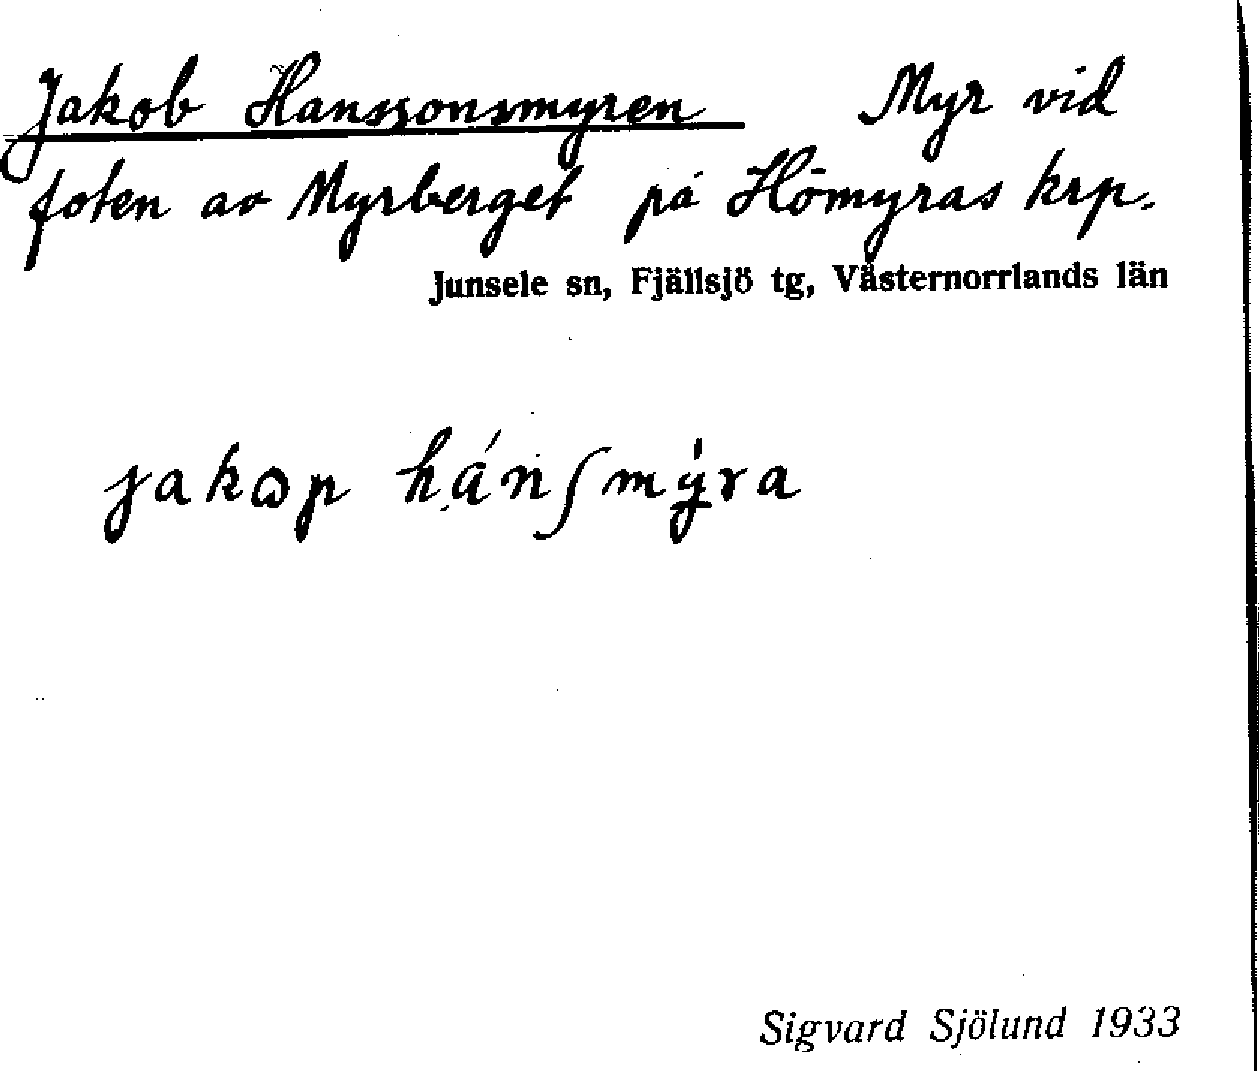 Jakob Hanssonsmyren Myr vid
foten av Myrberget på Hömyras krp.
Junsele sn, Fjällsjö tg, Västernorrlands län
jakɷp hánʃmýra
Sigvard Sjölund 1933